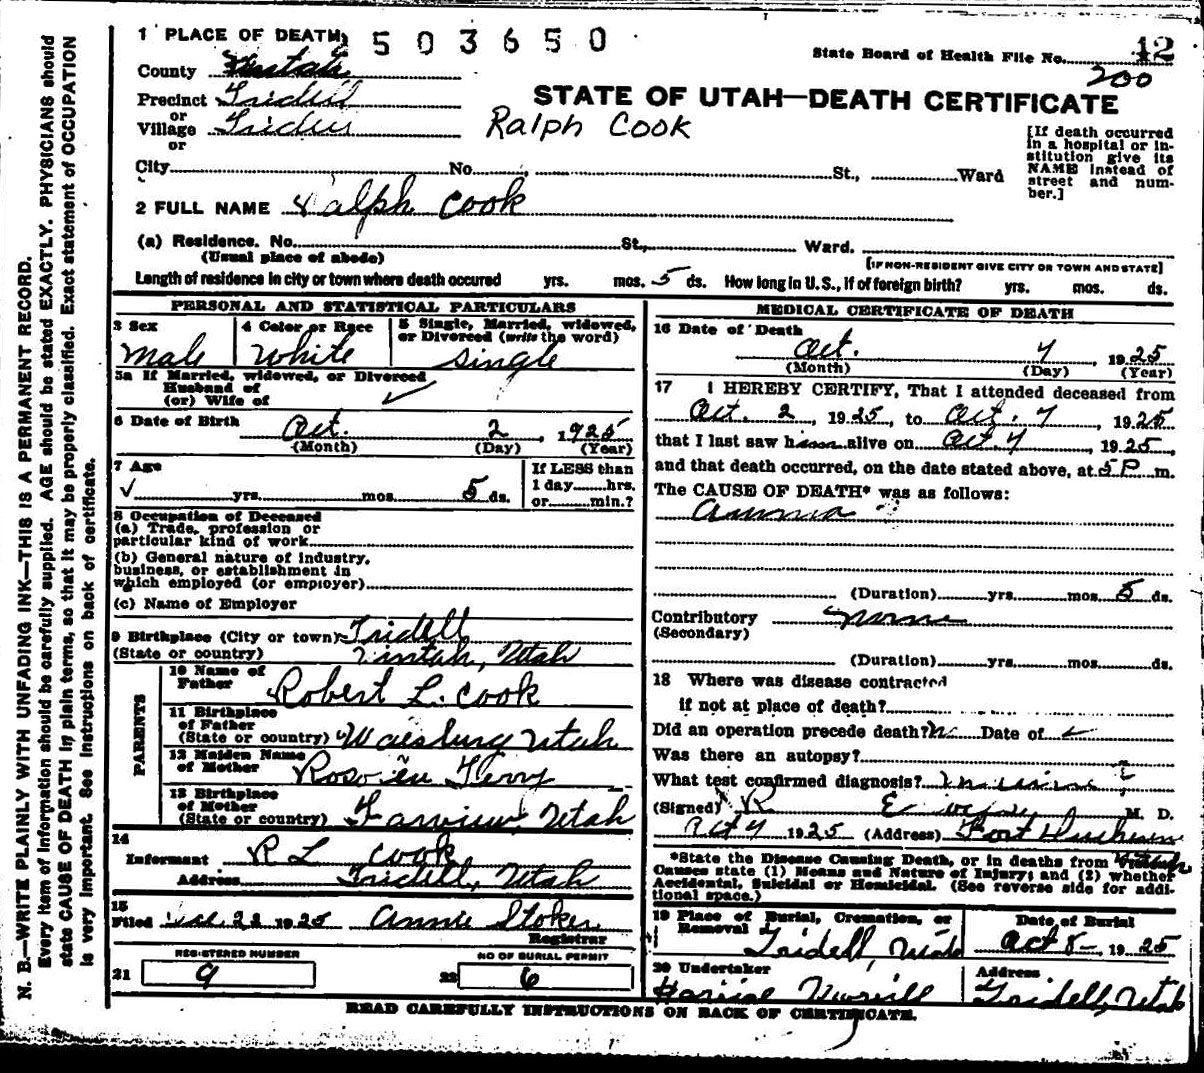 1 PLACE OF DEATH 503650
State Board of Health File No. 42
200
County Uintah
Precinct Tridell
or
Village Tridell
or
STATE OF UTAH—DEATH CERTIFICATE
Ralph Cook
[If death occurred in a hospital or in-
stitution give its
NAME instead of
street and num-
ber.]
City No. St., Ward
2 FULL NAME Ralph Cook
(a) Residence. No. St., Ward.
(Usual place of abode) [IF NON-RESIDENT GIVE CITY OR TOWN AND STATE]
Length of residence in city or town where death occured yrs. mos. 5 ds. How long in U.S., if of foreign birth? yrs. mos. ds.
PERSONAL AND STATISTICAL PARTICULARS
3 Sex
Male
4 Color or Race
White
5 Single, Married, widowed,
or Divorced (write the word)
Single
5a If Married, widowed, or Divorced
Husband of
(or) Wife of
6 Date of Birth Oct. 2, 1925
(Month) (Day) (Year)
7 Age
yrs. mos. 5 ds.
If LESS than
1 day hrs.
or min.?
8 Occupation of Deceased
(a) Trade, profession or
particular kind of work
(b) General nature of industry,
business, or establishment in
which employed (or employer)
(c) Name of Employer
9 Birthplace (City or town) Tridell
(State or country) Uintah, Utah
PARENTS
10 Name of
Father Robert L. Cook
11 Birthplace
of Father
(State or country) Utah
12 Maiden Name
of Mother Terry
13 Birthplace
of Mother
(State or country) Fairview, Utah
14
Informant R L Cook
Address Tridell, Utah
15
Filed 22 1925 Annie Stoker
Registrar
REGISTERED NUMBER
21 9
NO OF BURIAL PERMIT
22 6
MEDICAL CERTIFICATE OF DEATH
16 Date of Death
Oct. 7 1925
(Month) (Day) (Year)
17 I HEREBY CERTIFY, That I attended deceased from
Oct. 2, 1925, to Oct. 7, 1925
that I last saw him alive on Oct 7, 1925,
and that death occurred, on the date stated above, at 5 P m.
The CAUSE OF DEATH* was as follows:
(Duration) yrs. mos. 5 ds.
Contributory None
(Secondary)
(Duration) yrs. mos. ds.
18 Where was disease contracted
if not at place of death?
Did an operation precede death? No Date of
Was there an autopsy?
What test confirmed diagnosis?
(Signed) R M. D.
Oct 7 1925 (Address) Fort Duchesne
*State the Disease Causing Death, or in deaths from
Causes state (1) Means and Nature of Injury; and (2) whether
Accidental, Suicidal or Homicidal. (See reverse side for addi-
tional space.)
19 Place of Burial, Cremation, or
Removal
Tridell, Utah
Date of Burial
Oct 8 1925
20 Undertaker
Address
Tridell, Utah
READ CAREFULLY INSTRUCTIONS ON BACK OF CERTIFICATE.
N. B.—WRITE PLAINLY WITH UNFADING INK—THIS IS A PERMANENT RECORD.
Every item of information should be carefully supplied. AGE should be stated EXACTLY. PHYSICIANS should
state CAUSE OF DEATH in plain terms, so that it may be properly classified. Exact statement of OCCUPATION
is very important. See instructions on back of certificate.